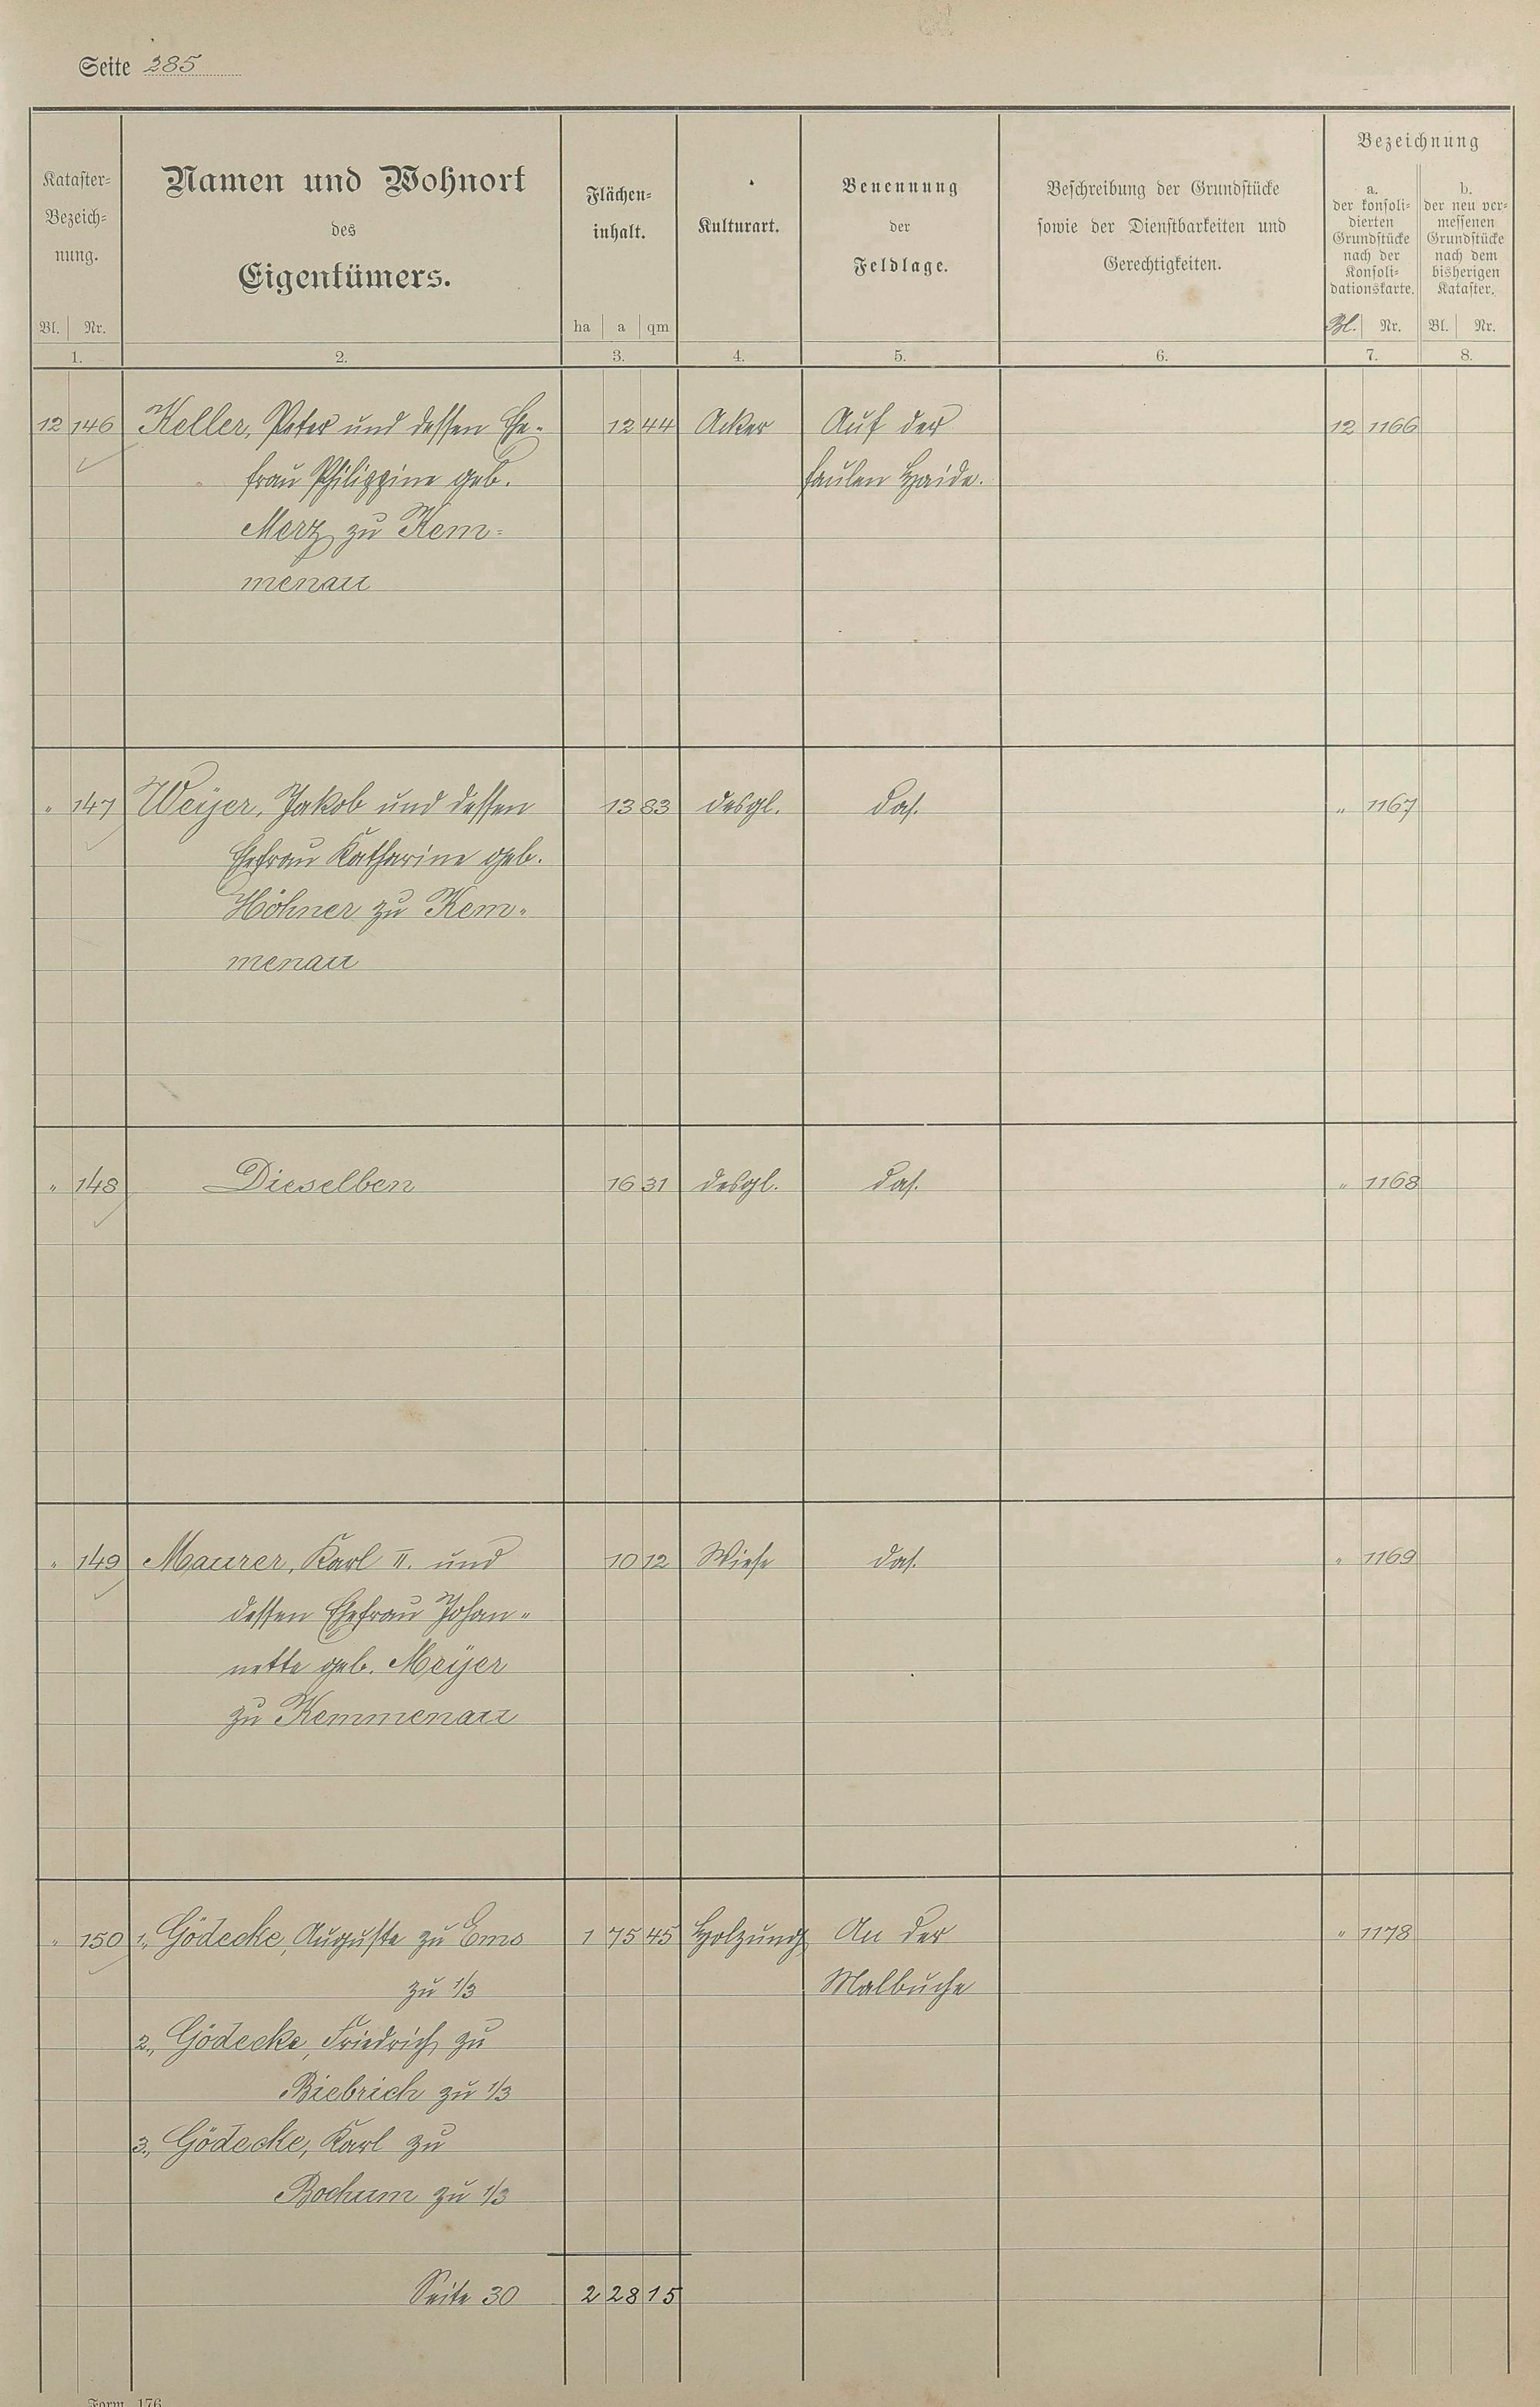 Seite 285
Kataster-
Bezeich-
nung.
Bl. Nr.
1.
Namen und Wohnort
des
Eigentümers.
2.
Flächen-
inhalt.
ha a qm
3.
Kulturart.
4.
Benennung
der
Feldlage.
5.
Beschreibung der Grundstücke
sowie der Dienstbarkeiten und
Gerechtigkeiten.
6.
Bezeichnung
a.
der konsoli-
dierten
Grundstücke
nach der
Konsoli-
dationskarte.
Bl. Nr.
7.
b.
der neu ver-
messenen
Grundstücke
nach dem
bisherigen
Kataster.
Bl. Nr.
8.
12 146 Keller, Peter und dessen Ehe- 12 44 Acker Auf der 12 1166
frau Philippine geb. faulen Haide.
Merz zu Kem-
menau
" 147 Weijer, Jakob und dessen 13 83 desgl. das. " 1167
Ehefrau Katharine geb.
Höhner zu Kem-
menau
" 148 Dieselben 16 31 desgl. das. " 1168
" 149 Maurer, Karl II. und 10 12 Wiese das. " 1169
dessen Ehefrau Johan-
nette geb. Meijer
zu Kemmenau
" 150 1., Gödecke, Auguste zu Ems 1 75 45 Holzung An der " 1178
zu 1/3 Malbuche
2., Gödecke, Friedrich zu
Biebrich zu 1/3
3., Gödecke, Karl zu
Bochum zu 1/3
Seite 30 2 28 15
Form. 176